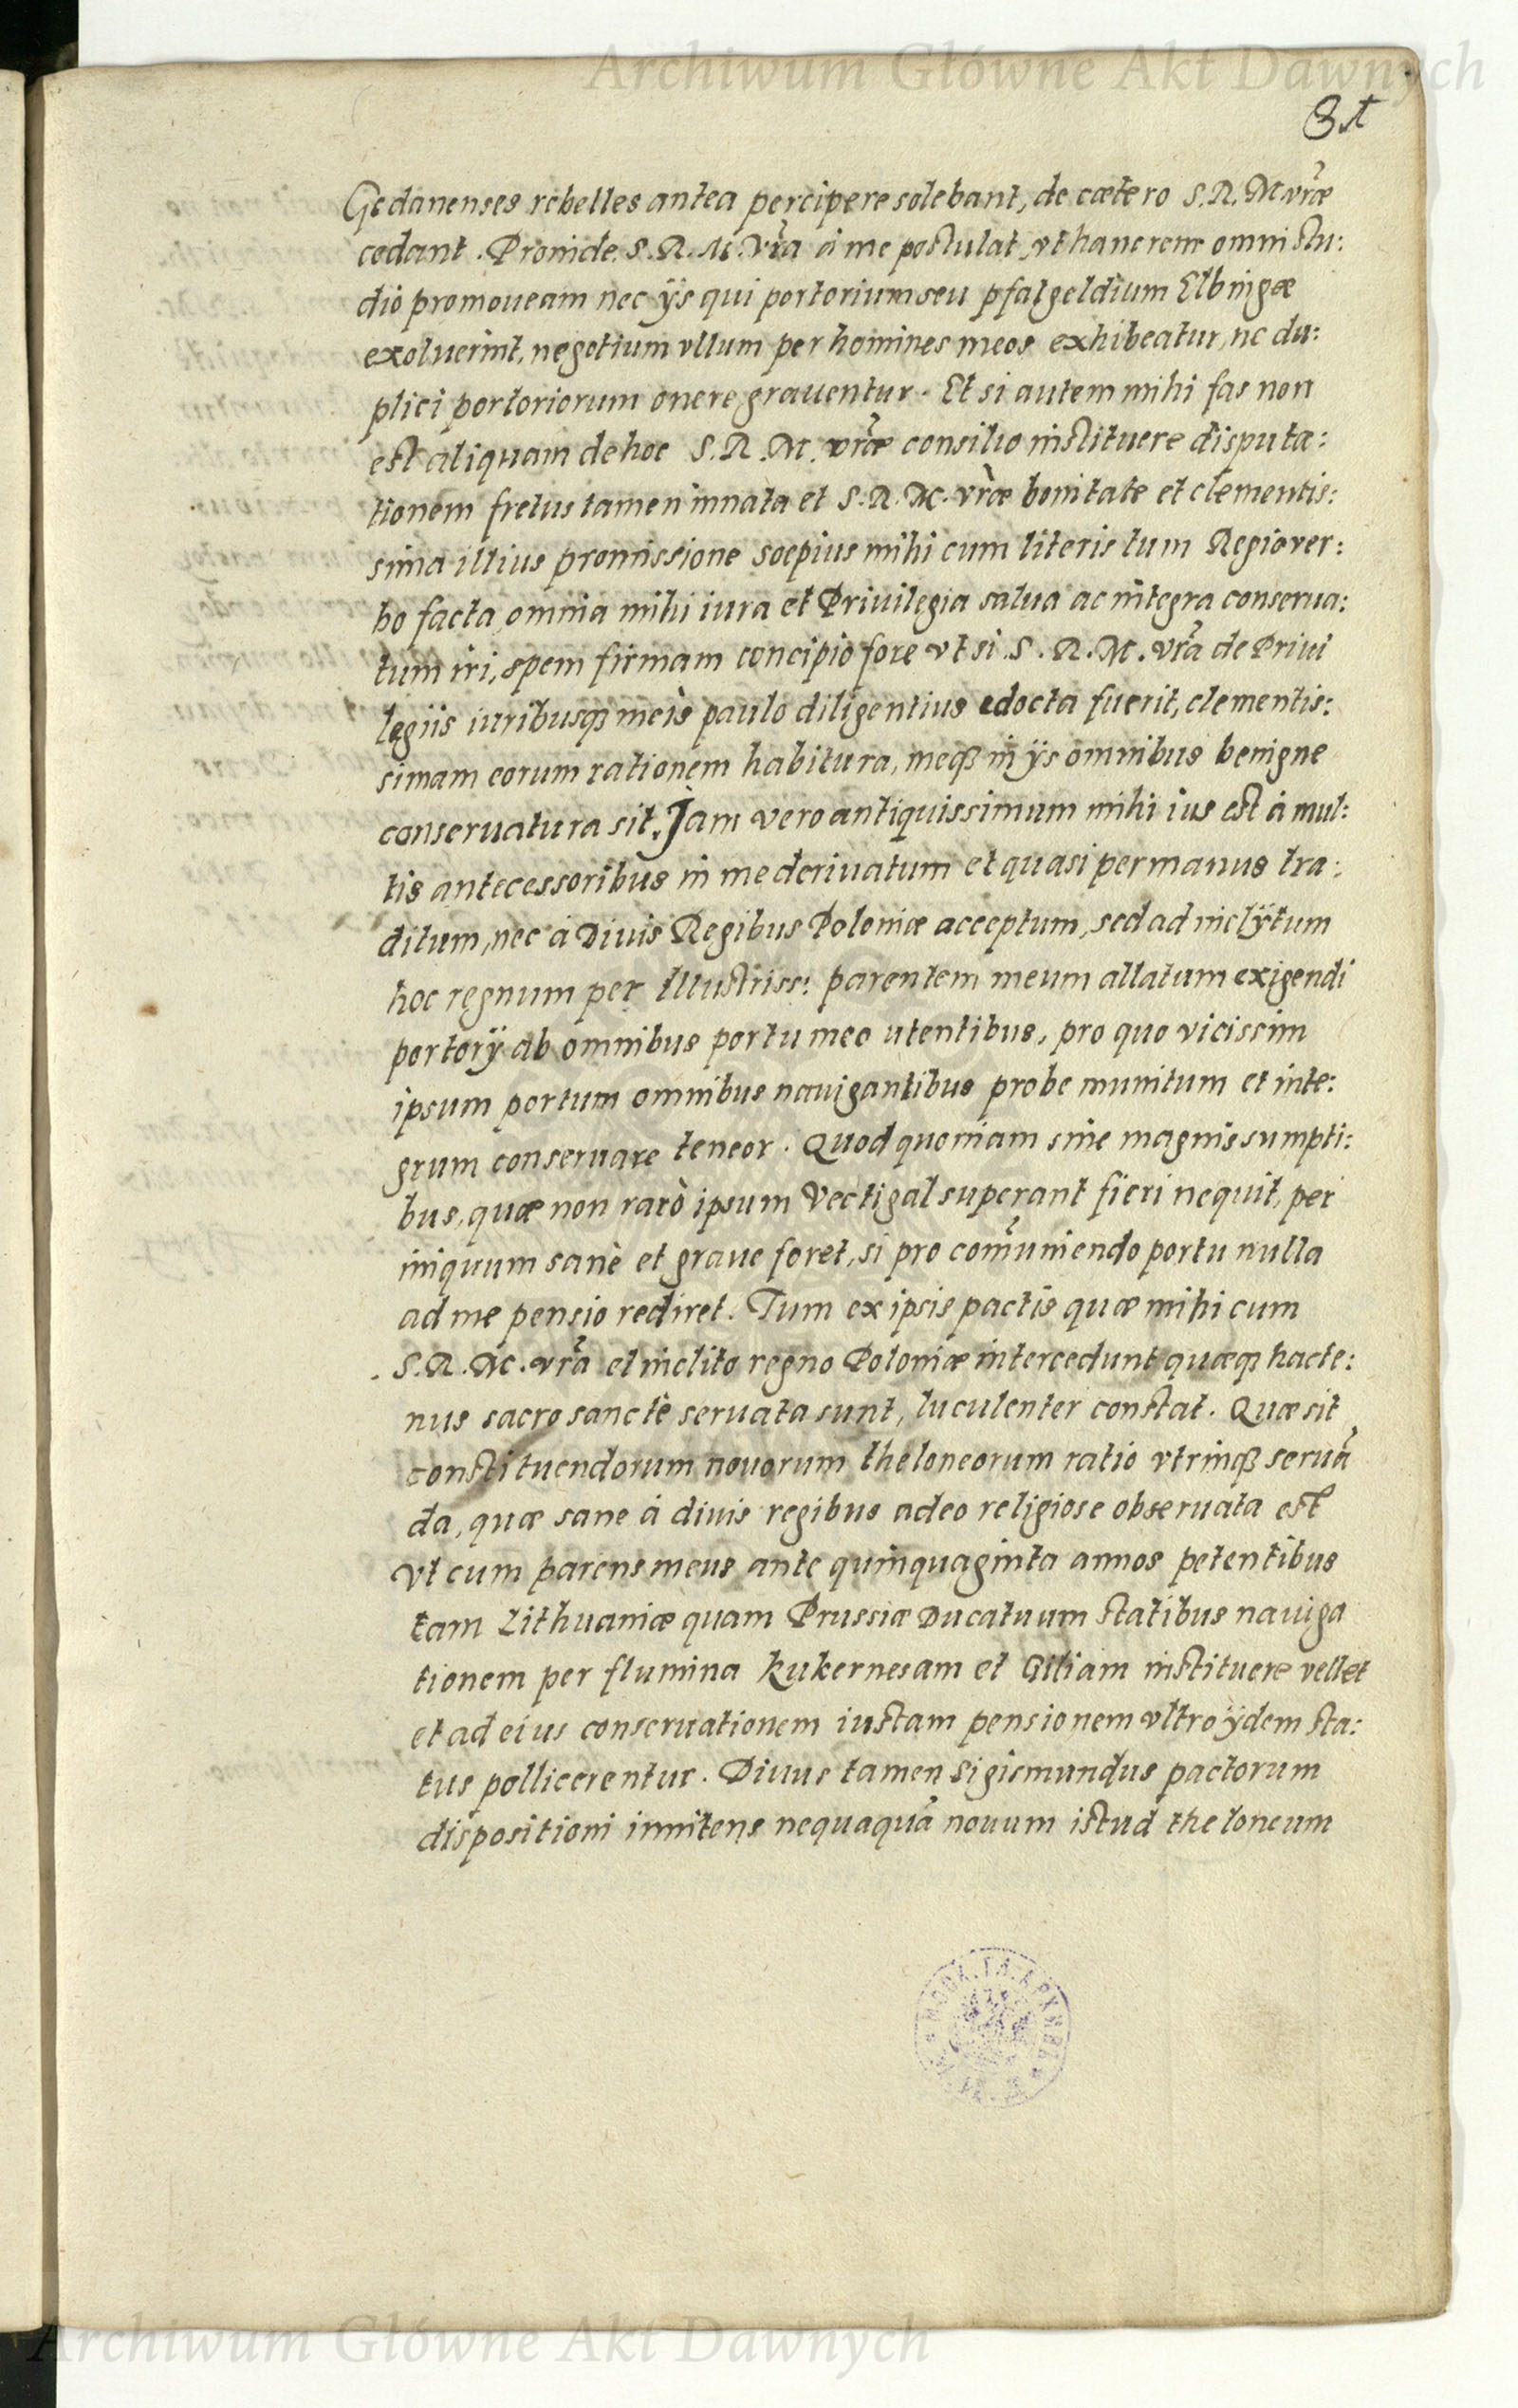 Archiwum Główne Akt Dawnych
Gedanenses rebelles antea percipere solebant, de cætero S.R.M vr̃æ
cedant. Proinide S.R.M. vr̃a à me postulat, vt hanc rem omni stu:
dio promoueam nec ÿs qui portorium seu pfalgeldium Elbingæ
exoluerint, negotium vllum per homines meos exhibeatur, ne du:
plici portoriorum onere grauentur. Et si autem mihi fas non
est aliquam de hoc S.R.M. vr̃æ consilio instituere disputa:
tionem fretus tamen innata et S.R.M. vr̃æ bonitate et clementis:
sima illius promissione soepius mihi cum literis tum Regio ver:
bo facta, omnia mihi iura et Priuilegia salua ac integra conserua:
tum iri, spem firmam concipio fore vt si S.R.M. vr̃a de Priui
legiis iuribusq₃ meis paulo diligentius edocta fuerit, clementis:
simam eorum rationem habitura, meq₃ in ÿs omnibus benigne
conseruatura sit. Jam vero antiquissimum mihi ius est à mul:
tis antecessoribus in me deriuatum et quasi per manus tra:
ditum, nec à Diuis Regibus Poloniæ acceptum, sed ad inclÿtum
hoc regnum per Illustriss: parentem meum allatum exigendi
portorÿ ab omnibus portu meo utentibus, pro quo vicissim
ipsum portum omnibus nauigantibus probe munitum et inte:
grum conseruare teneor. Quod quoniam sine magnis sumpti:
bus, quæ non rarò ipsum Vectigal superant fieri nequit, per
iniquum sanè et graue foret, si pro com̃uniendo portu nulla
ad me pensio rediret. Tum ex ipsis pactis quæ mihi cum
S.R.M. vr̃a et inclito regno Poloniæ intercedunt quæq₃ hacte:
nus sacro sanctè seruata sunt, luculenter constat. Quæ sit
constituendorum nouorum theloneorum ratio vtrinq₃ seruã
da, quæ sane à diuis regibus adeo religiose obseruata est
vt cum parens meus ante quinquaginta annos petentibus
tam Lithuaniæ quam Prussiæ Ducatuum statibus nauiga
tionem per flumina Kukernesam et Giliam instituere vellet
et ad eius conseruationem iustam pensionem vltro ÿdem sta:
tus pollicerentur. Diuus tamen Sigismundus pactorum
dispositioni innitens nequaquã nouum istud theloneum
Archiwum Główne Akt Dawnych